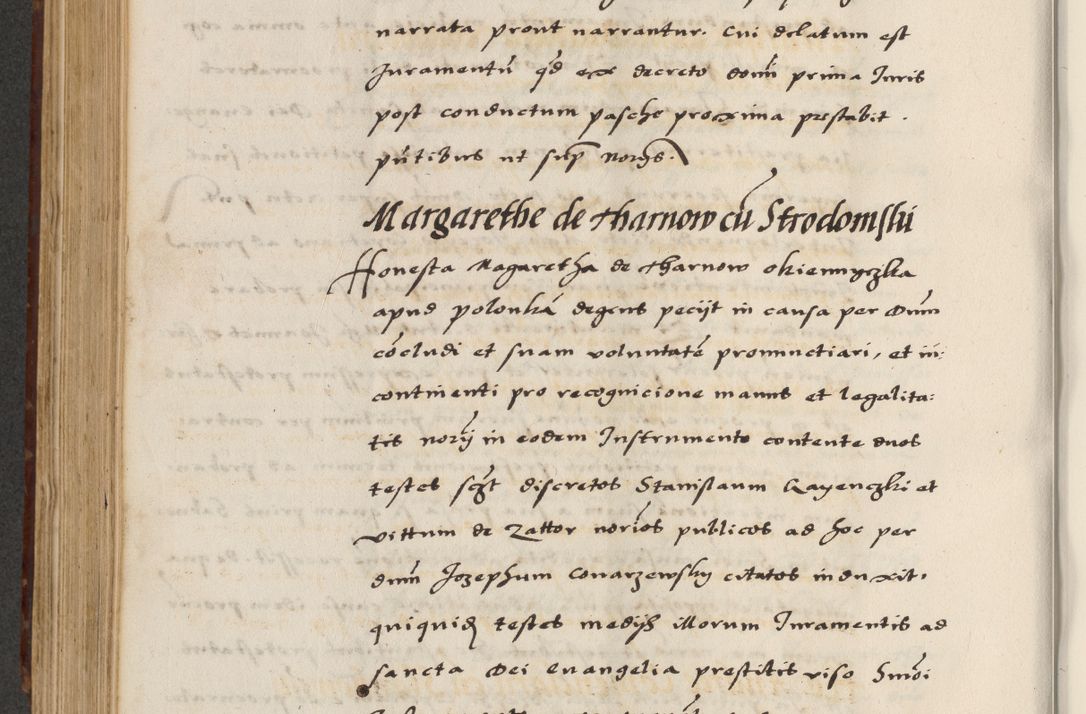 narrata prout narrantur. Cui delatum est
Juramentū q̄d ex decreto domī prima Juris
post conductum pasche proxima prestabit .
pn̄tibus ut sup̄ nor̄ys.
Margarethe de tharnow cū Strodomski
Honesta Magaretha de tharnow okiennyczka
apud polonkā degens peciit in causa per Dn̄m
cōcludi et suam voluntatē pronunctiari, et in:
continenti pro recognicione manus et legalita:
tis nor̄ij in eodem Instrumento contente duos
testes sc̄zt discretos Stanislaum Gayenczki et
vittum de Zattor nor̄ios publicos ad hoc per
dn̄m Jozephum Conarzewsky citatos induxit.
quiquid testes medijs illorum Juramentis ad
sancta Dei evangelia prestitis viso Sn̄oi